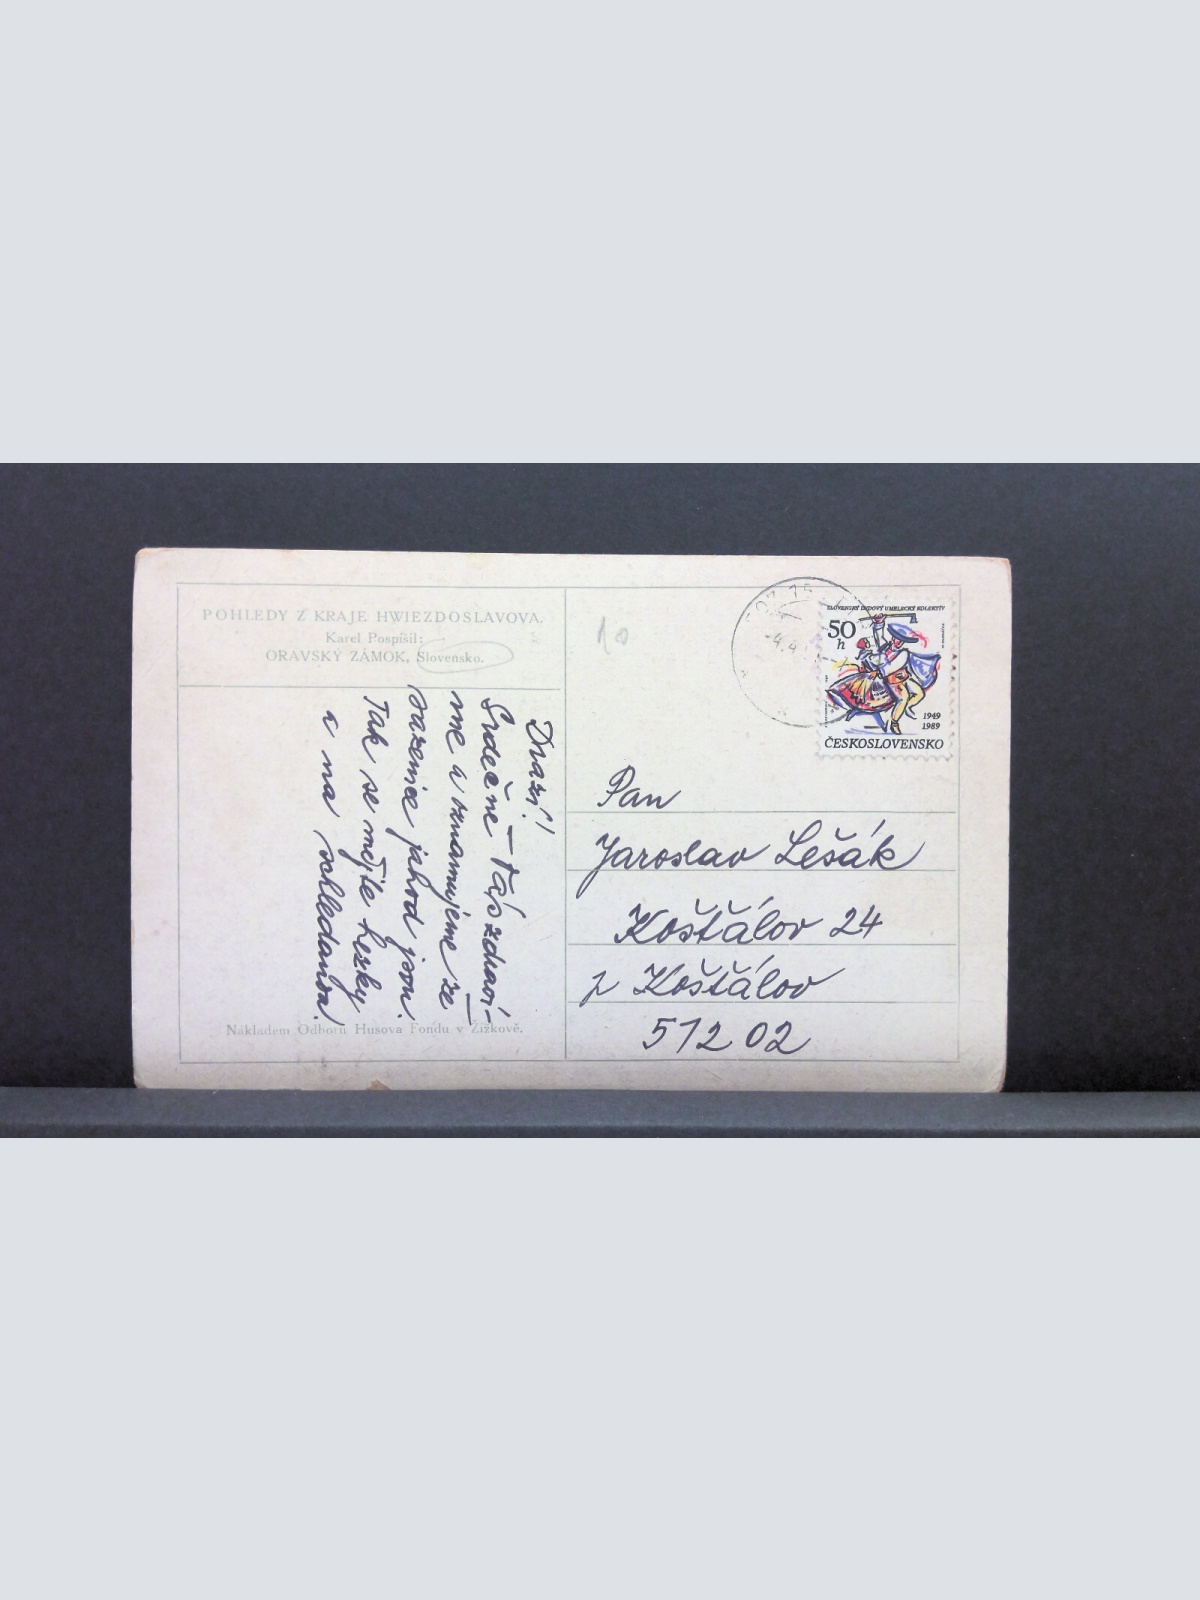 POHLEDY Z KRAJE HWIEZDOSLAVOVA.
Karel Pospíšil:
ORAVSKÝ ZÁMOK, Slovensko.
10
Drazí!
Srdečně – Vás zdraví-
me a oznamujeme že
sazenice jahod jsou.
Tak se mějte hezky
a na shledanou!
Nákladem Odboru Husova Fondu v Žižkově.
-4.4
SLOVENSKÝ ĽUDOVÝ UMELECKÝ KOLEKTÍV
50
h
1949
1989
ČESKOSLOVENSKO
Pan
Jaroslav Lešák
Košťálov 24
p Košťálov
512 02